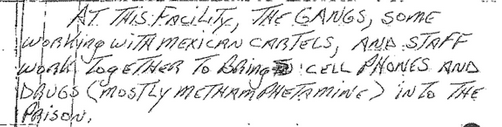 AT THIS FACILITY, THE GANGS, SOME
WORKING WITH MEXICAN CARTELS, AND STAFF
WORK TOGETHER TO BRING CELL PHONES AND
DRUGS (MOSTLY METHAMPHETAMINE) INTO THE
PRISON.